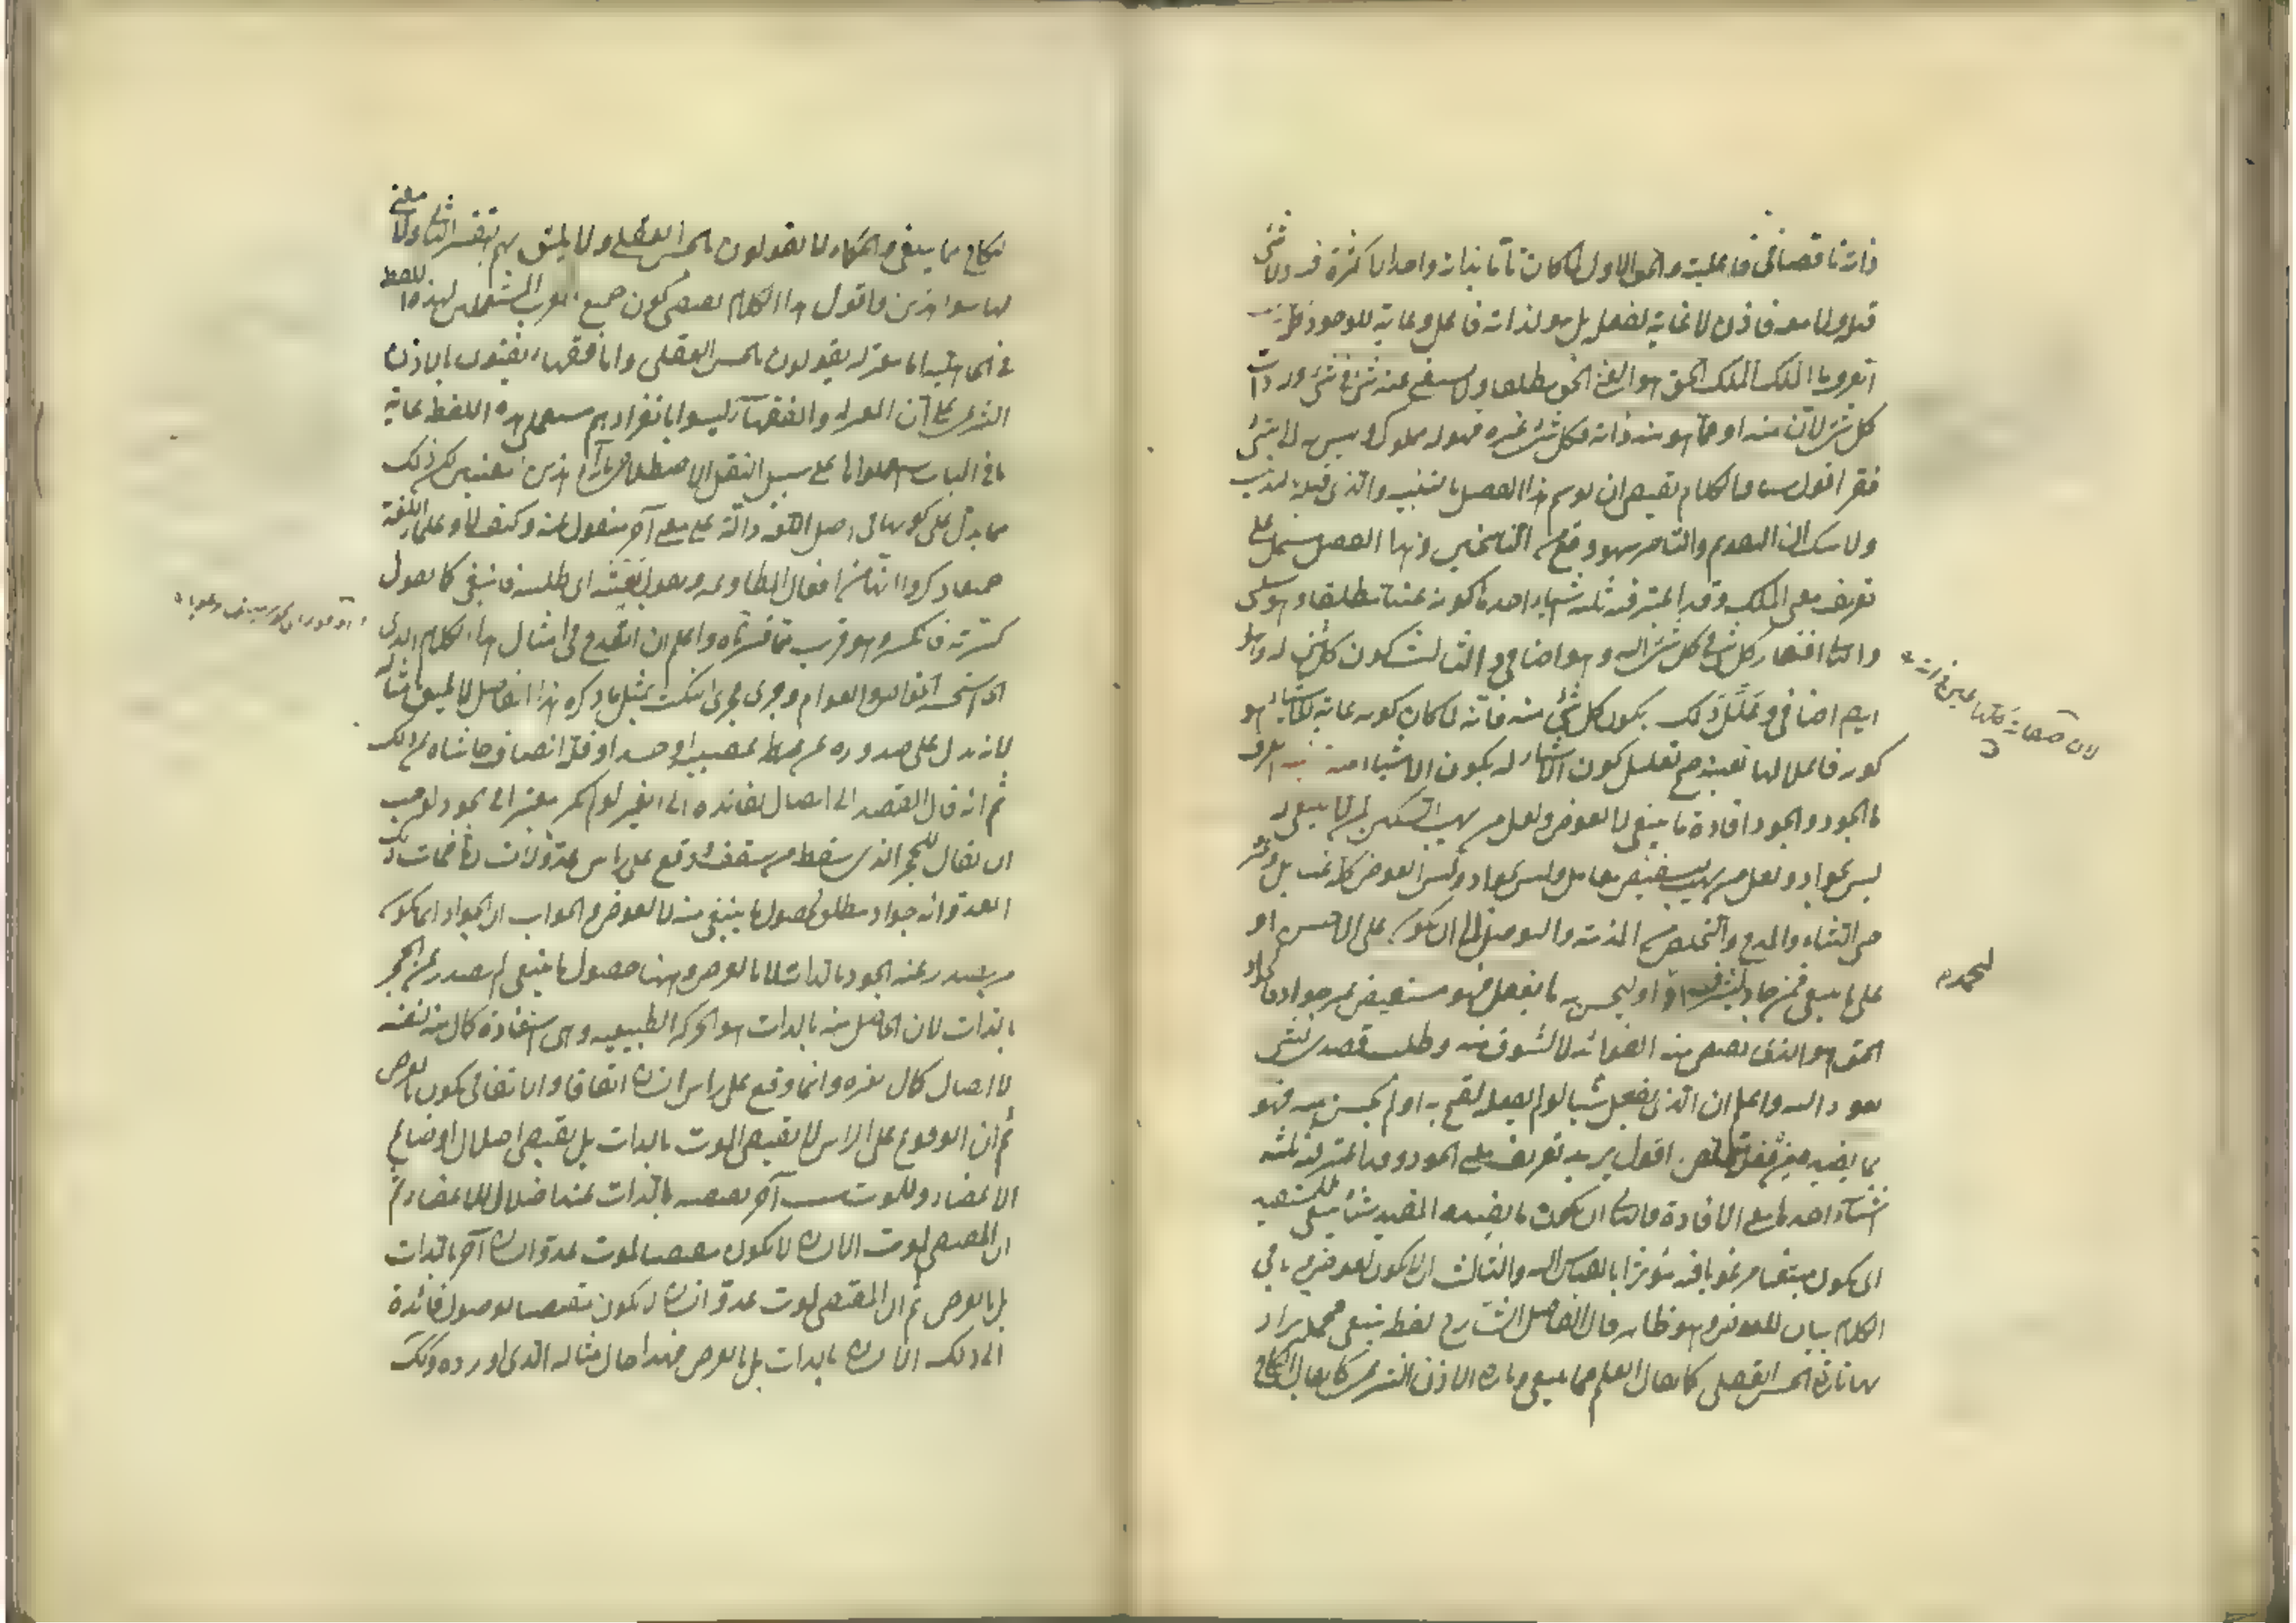 ذاته ناقصا في فاعليته والحق الاول لما كان تاما بذاته واحدا لا كثرة فيه ولا شئ
قبله ولا معه فاذن لا غاية لفعله بل هو لذاته فاعل وغاية للوجود
اتعرف ما الملك الملك الحق هو الغنى الحق مطلقا ولا يستغنى عنه شئ في شئ وله ذات
كل شئ لان منه او مما هو منه ذاته فكل شئ غيره فهو له مملوك وليس له الى شئ
فقر اقول الكلام يقتضى ان يوسم هذا الفصل بالتنبيه والذى قبله
ولا شك ان التقديم والتاخير سهو وقع من الناسخين وهذا الفصل مشتمل على
تعريف معنى الملك وقد اعتبر فيه ثلثة اشياء احدها كونه غنيا مطلقا وهو سلبى
والثانى افتقار كل شئ في كل شئ اليه وهو اضافى والثالث كون كل شئ له وهو
ايضا اضافى وعلل ذلك بكون كل شئ منه فانه لما كان كونه غاية للاشياء هو
كونه فاعلا لها بعينه صح تعليل كون الاشياء له بكون الاشياء منه تنبيه اتعرف
ما الجود والجود افادة ما ينبغى لا لعوض ولعل من يهب السكين لمن لا ينبغى له
ليس بجواد ولعل من يهب ليستعيض معامل وليس بجواد وليس العوض كله عينا بل وغيره
حتى الثناء والمدح والتخلص من المذمة والتوصل الى ان يكون على الاحسن او
على ما ينبغى فمن جاد ليشرف او ليحسن به ما يفعل فهو مستعيض غير جواد فالجواد
الحق هو الذى يفيض منه الفوائد لا لشوق منه وطلب قصدى لشئ
يعود اليه واعلم ان الذى يفعل شيئا لو لم يفعله لقبح به او لم يحسن منه فهو
بما يفيده من فعله متخلص اقول يريد تعريف معنى الجود وقد اعتبر فيه ثلثة
اشياء احدها معنى الافادة والثانى ان يكون ما يفيده المفيد شيئا ينبغى للمستفيد
اى يكون مبتغا مرغوبا فيه مؤثرا بالقياس اليه والثالث ان لا يكون لعوض وباقى
الكلام بيان للعوض وهو ظاهر قال الفاضل الشارح لفظة ينبغى مجملة يراد
بها تارة الحسن العقلى كما يقال العلم مما ينبغى وتارة الاذن الشرعى كما يقال النكاح
لان صفاته كلها عين ذاته
ليحمد
النكاح مما ينبغى والحكماء لا يقولون بالحسن العقلى ولا يليق بهم تفسير الثانى ولا معنى
لها سوا هذين واقول هذا الكلام يقتضى كون جميع العرب المستعملين لهذه اللفظة
في الجاهلية اما معتزلة يقولون بالحسن العقلى واما فقهاء يفتون بالاذن
الشرعى على ان المعتزلة والفقهاء ليسوا بانفرادهم مستعملى هذه اللفظة غاية
ما في الباب استعملوها على سبيل النقل الاصطلاحى بازاء هذين المعنيين لكن ذلك
مما يدل على كونها في اصل اللغة دالة على معنى آخر منقول عنه وكيف لا وعلماء اللغة
جميعا ذكروا انها من افعال المطاوعة ويقول بغيته اى طلبته فانبغى كما يقول
كسرته فانكسر وهو قريب مما فسرناه واعلم ان القدح في امثال هذا الكلام الذى
وجرى مجرى النكت بمثل ما ذكره هذا الفاضل لا يليق بامثاله
لانه يدل على صدوره عن او حسد او قلة انصاف حاشاه عن ذلك
ثم انه قال القصد الى ايصال الفائدة الى الغير لو لم يكن معتبرا في الجود لوجب
ان يقال للحجر الذى سقط من سقف ووقع على راس عدو لانسان فمات ذلك
العدو انه جواد مطلق لحصول ما ينبغى منه لا لعوض والجواب ان الجواد انما يكون
من يصدر عنه الجود بالذات لا بالعرض وههنا حصول ما ينبغى لم يصدر عن الحجر
بالذات لان الحاصل منه بالذات هو الحركة الطبيعية وهى استفادة كمال منه لنفسه
لا ايصال كمال لغيره وانما وقع على راس انسان اتفاقا والاتفاقى يكون بالعرض
ثم ان الوقوع على الراس لا يقتضى الموت بالذات بل يقتضى اختلال اوضاع
الاعضاء وللموت سبب آخر يقتضيه بالذات عند اختلال الاعضاء ثم
ان المقتضى لموت الانسان لا يكون مقتضيا لموت عدو انسان آخر بالذات
بل بالعرض ثم ان المقتضى لموت عدو انسان لا يكون مقتضيا لوصول فائدة
الى ذلك الانسان بالذات بل بالعرض فهذا حال مثاله الذى اورده وكذلك